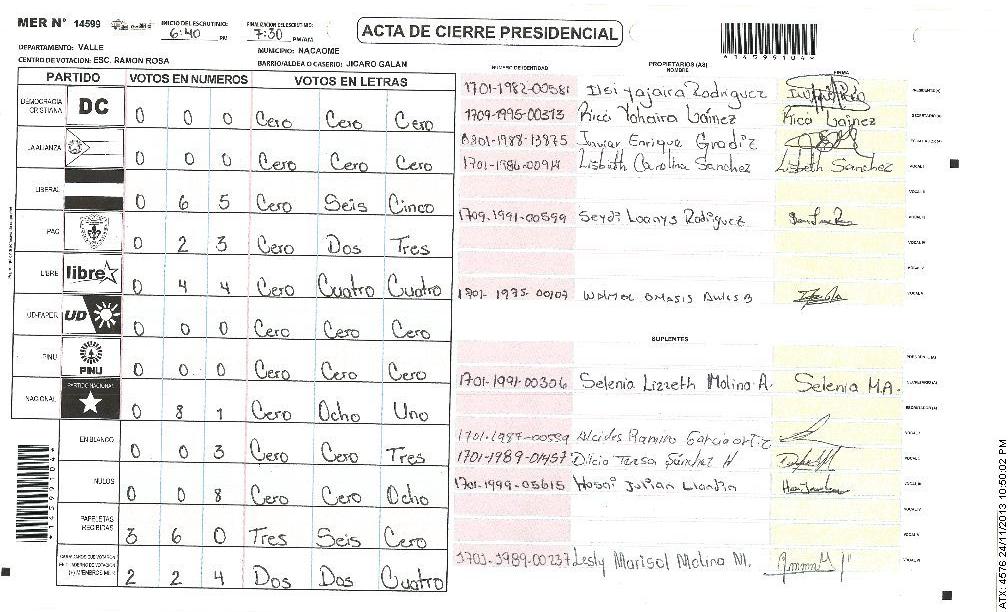 MER Nº 14599
INICIO DEL ESCRUTINIO: 6:40 PM
FINALIZACION DEL ESCRUTINIO: 7:30 PM/AM
ACTA DE CIERRE PRESIDENCIAL
*14599104*
DEPARTAMENTO: VALLE
MUNICIPIO: NACAOME
CENTRO DE VOTACION: ESC. RAMON ROSA
BARRIO/ALDEA O CASERIO: JICARO GALAN
PARTIDO VOTOS EN NUMEROS VOTOS EN LETRAS
DEMOCRACIA CRISTIANA DC 0 0 0 Cero Cero Cero
LA ALIANZA 0 0 0 Cero Cero Cero
LIBERAL 0 6 5 Cero Seis Cinco
PAC 0 2 3 Cero Dos Tres
LIBRE libre 0 4 4 Cero Cuatro Cuatro
UD-FAPER UD 0 0 0 Cero Cero Cero
PINU PINU 0 0 0 Cero Cero Cero
NACIONAL PARTIDO NACIONAL 0 8 1 Cero Ocho Uno
EN BLANCO 0 0 3 Cero Cero Tres
NULOS 0 0 8 Cero Cero Ocho
PAPELETAS RECIBIDAS 3 6 0 Tres Seis Cero
CIUDADANOS QUE VOTARON 2 2 4 Dos Dos Cuatro
NUMERO DE IDENTIDAD
PROPIETARIOS (AS)
NOMBRE
FIRMA
1701-1982-00581 Ilsi Yajaira Rodriguez
1709-1995-00313 Ricci Yohaira Láinez Ricci Láinez
0801-1988-13875 Enrique Gradiz
1701-1986-00914 Lisbeth Carolina Sanchez Lisbeth Sanchez
1709-1991-00599 Seydi Loanys Rodriguez
1701-1975-00109
SUPLENTES
1701-1991-00306 Selenia Lizzeth Molina A. Selenia M.A.
1701-1987-00559 Alcides Ramiro Garcia ortiz
1701-1989-01457 Dilcia Teresa Sánchez H
1701-1999-05615 Julian
1701-1989-00737 Lesly Marisol Molina M.
*14599104*
ATX: 4576 24/11/2013 10:50:02 PM